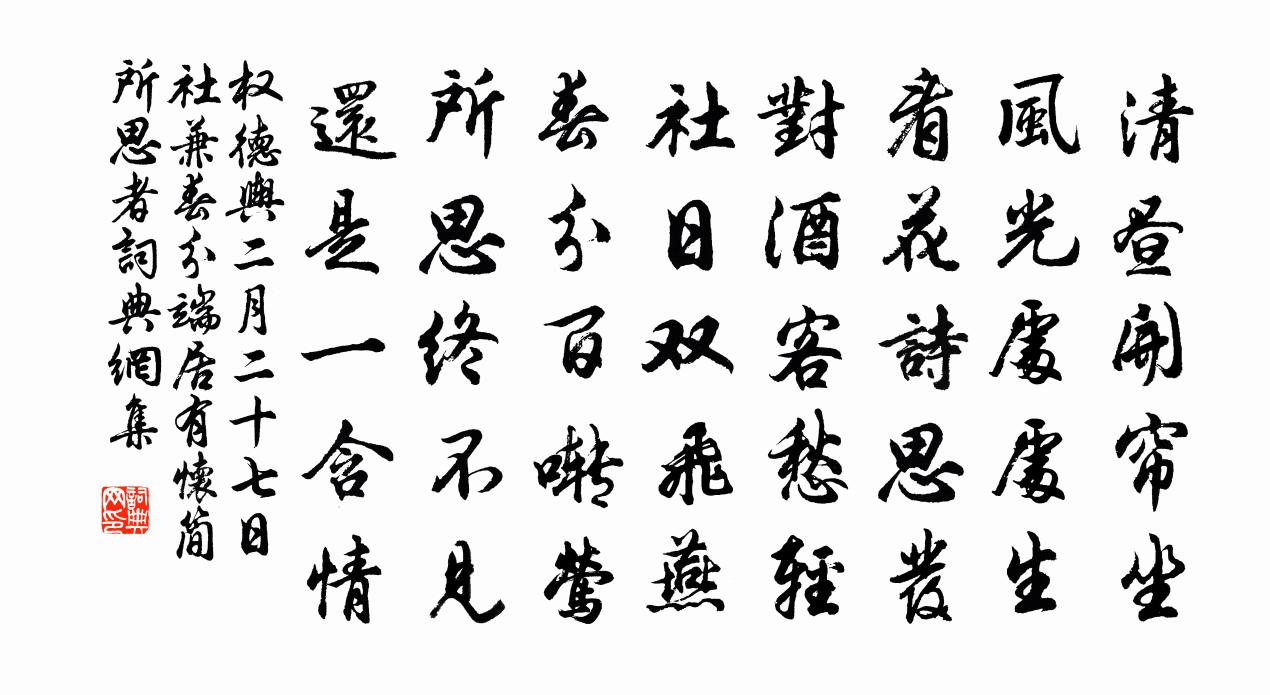 清昼開帘坐
風光處處生
看花詩思發
對酒客愁輕
社日双飛燕
春分百囀鶯
所思終不見
還是一含情
权德輿二月二十七日
社兼春分端居有懷简
所思者詞典網集
詞典
网印